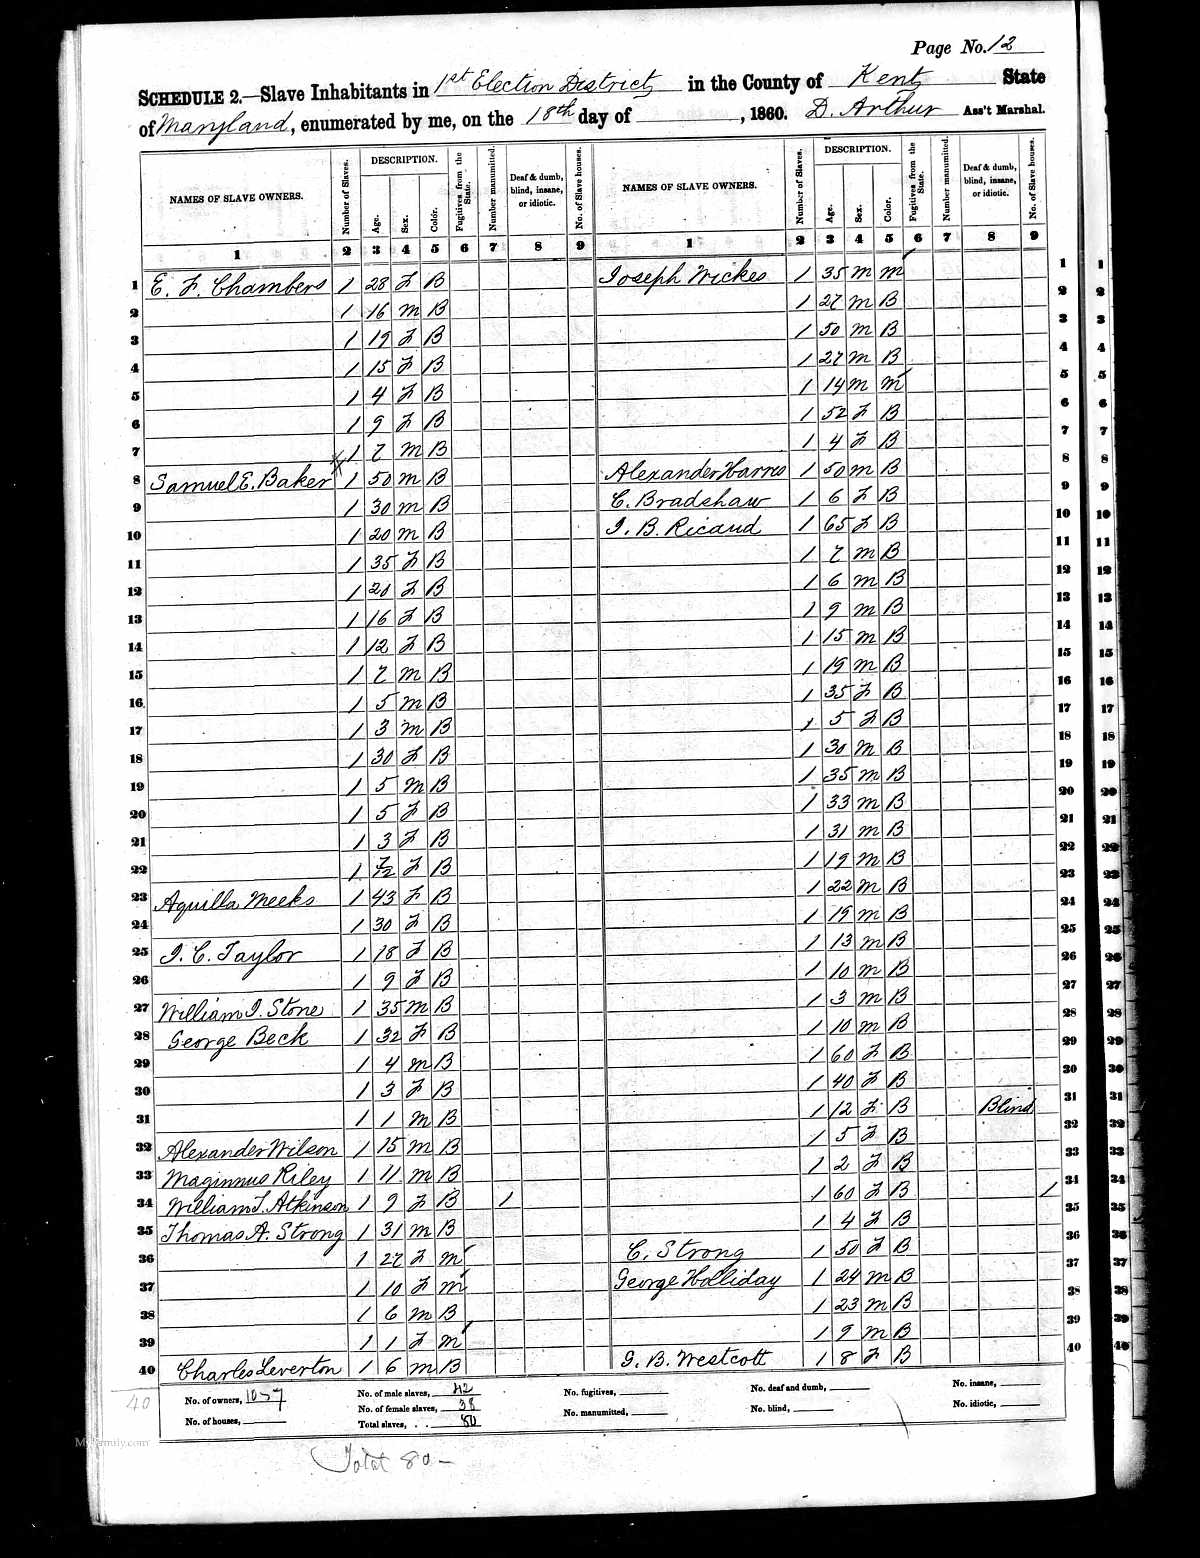 Page No. 12
SCHEDULE 2.—Slave Inhabitants in 1st Election District in the County of Kent State
of Maryland, enumerated by me, on the 18th day of , 1860. D. Arthur Ass't Marshal.
NAMES OF SLAVE OWNERS. Number of Slaves. DESCRIPTION. Age. Sex. Color. Fugitives from the State. Number manumitted. Deaf & dumb, blind, insane, or idiotic. No. of Slave houses. NAMES OF SLAVE OWNERS. Number of Slaves. DESCRIPTION. Age. Sex. Color. Fugitives from the State. Number manumitted. Deaf & dumb, blind, insane, or idiotic. No. of Slave houses.
1 2 3 4 5 6 7 8 9 1 2 3 4 5 6 7 8 9
1 E. F. Chambers 1 28 F B Joseph Wickes 1 35 m m 1 1
2 1 16 m B 1 27 m B 2 2
3 1 19 F B 1 50 m B 3 3
4 1 15 F B 1 27 m B 4 4
5 1 4 F B 1 14 m m 5 5
6 1 9 F B 1 52 F B 6 6
7 1 7 m B 1 4 F B 7 7
8 Samuel E. Baker 1 50 m B Alexander Harris 1 50 m B 8 8
9 1 30 m B C. Bradshaw 1 6 F B 9 9
10 1 20 m B J. B. Ricaud 1 65 F B 10 10
11 1 35 F B 1 7 m B 11 11
12 1 20 F B 1 6 m B 12 12
13 1 16 F B 1 9 m B 13 13
14 1 12 F B 1 15 m B 14 14
15 1 7 m B 1 19 m B 15 15
16 1 5 m B 1 35 F B 16 16
17 1 3 m B 1 5 F B 17 17
18 1 30 F B 1 30 m B 18 18
19 1 5 m B 1 35 m B 19 19
20 1 5 F B 1 33 m B 20 20
21 1 3 F B 1 31 m B 21 21
22 1 7/12 F B 1 19 m B 22 22
23 Aquilla Meeks 1 43 F B 1 22 m B 23 23
24 1 30 F B 1 19 m B 24 24
25 J. C. Taylor 1 18 F B 1 13 m B 25 25
26 1 9 F B 1 10 m B 26 26
27 William J. Stone 1 35 m B 1 3 m B 27 27
28 George Beck 1 32 F B 1 10 m B 28 28
29 1 4 m B 1 60 F B 29 29
30 1 3 F B 1 40 F B 30 30
31 1 1 m B 1 12 F B Blind 31 31
32 Alexander Wilson 1 15 m B 1 5 F B 32 32
33 Maginnus Riley 1 11 m B 1 2 F B 33 33
34 William T. Atkinson 1 9 F B 1 1 60 F B 1 34 34
35 Thomas A. Strong 1 31 m B 1 4 F B 35 35
36 1 27 F m C. Strong 1 50 F B 36 36
37 1 10 F m George Holliday 1 24 m B 37 37
38 1 6 m B 1 23 m B 38 38
39 1 1 F m 1 9 m B 39 39
40 Charles Leverton 1 6 m B J. B. Westcott 1 8 F B 40 40
40 No. of owners, 10-7 No. of male slaves, 42 No. fugitives, No. deaf and dumb, No. insane,
No. of houses, No. of female slaves, 38 No. manumitted, No. blind, No. idiotic,
Total slaves, 80
MyFamily.com
Total 80-